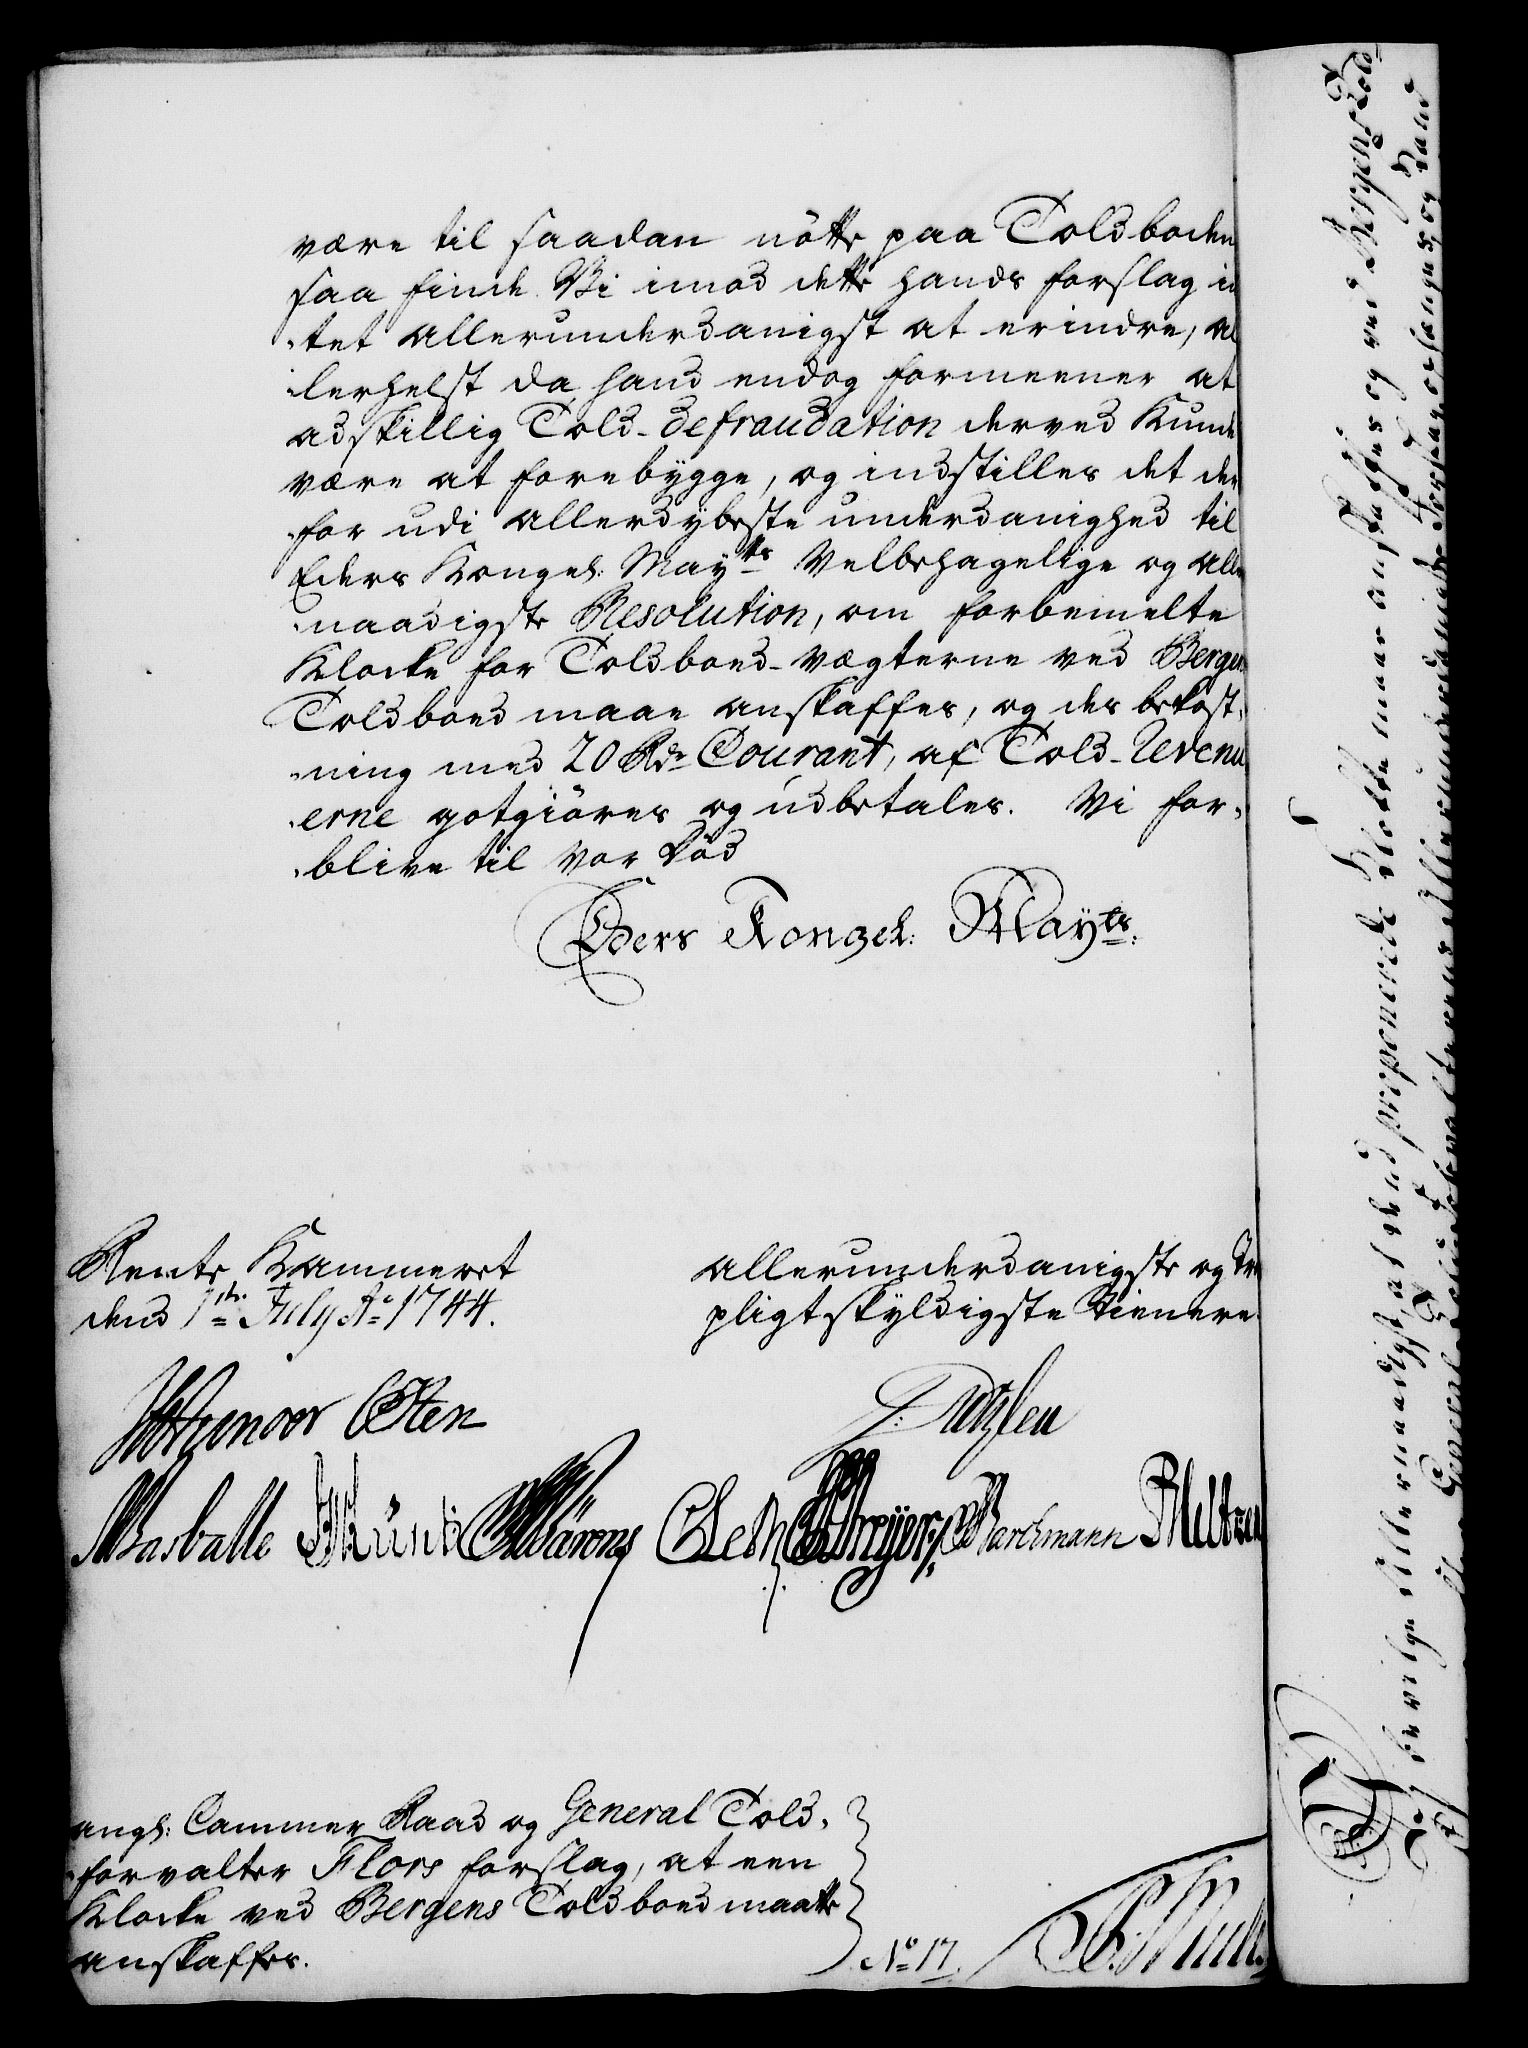 være til saadan nötte paa Toldboden
saa finde Vi imod dette hands forslag in
tet allerunderdanigst at erindre, al
lerhelst da hand endog formeener at
adskillig Told-defraudation derved kunde
være at forebygge, og indstilles det der
for udi allerdybeste underdanighed til
Eders Kongel: Mayts Velbehagelige og aller
naadigste Resolution, om forbemelte
Klocke for Toldboed-vægterne ved Bergens
Toldboed maae anskaffes, og des bekost,
ning med 20 Rdr Courant, af Told-Revenu
erne gotgiöres og udbetales. Vi for,
blive til vor Död
Eders Kongel: Mayts:
Rente Kammeret
dend 1te July Ao 1744.
allerunderdanigste og Tro
pligtskyldigste tienere
Osten
Basballe
Barchmann
angl: Cammer Raad og General Told,
forvalter Flors forslag, at een
Klocke ved Bergens Toldboed maatte
anskaffes.
No 17.
Vi bevilge Allernaadigst, at dend proponerede Klocke maae anskaffes og ved Bergens Told
General